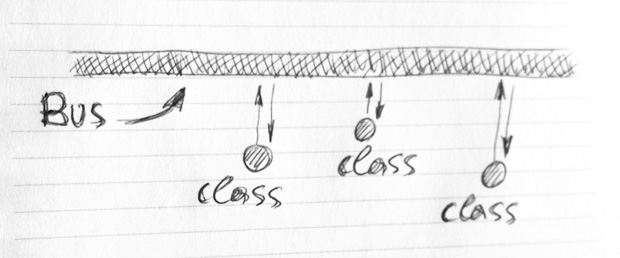 Bus
class
class
class